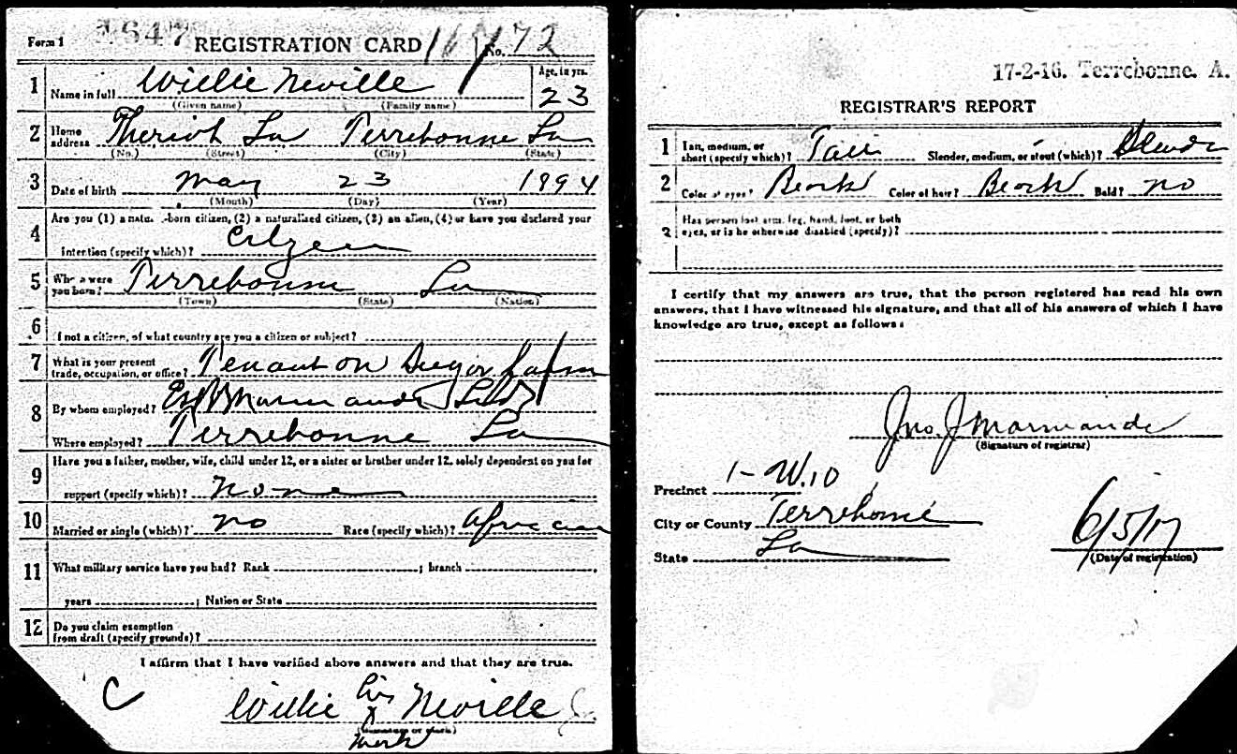 Form 1 1647 REGISTRATION CARD 167 No. 72
1 Name in full Willie Neville Age, in yrs. 23
(Given name) (Family name)
2 Home address Theriot La Terrebonne La
(No.) (Street) (City) (State)
3 Date of birth May 23 1994
(Month) (Day) (Year)
4 Are you (1) a natural-born citizen, (2) a naturalized citizen, (3) an alien, (4) or have you declared your
intention (specify which)? Citzen
5 Where were you born? Terrebonne La
(Town) (State) (Nation)
6 If not a citizen, of what country are you a citizen or subject?
7 What is your present trade, occupation, or office? Tenant on Sugar farm
8 By whom employed? Marmande
Where employed? Terrebonne La
9 Have you a father, mother, wife, child under 12, or a sister or brother under 12, solely dependent on you for
support (specify which)? none
10 Married or single (which)? no Race (specify which)? African
11 What military service have you had? Rank ; branch ;
years ; Nation or State
12 Do you claim exemption from draft (specify grounds)?
I affirm that I have verified above answers and that they are true.
C Willie his x Neville
(Signature or mark)
mark
17-2-16. Terrebonne. A.
REGISTRAR'S REPORT
1 Tall, medium, or short (specify which)? Tall Slender, medium, or stout (which)? Slender
2 Color of eyes? Black Color of hair? Black Bald? no
3 Has person lost arm, leg, hand, foot, or both
eyes, or is he otherwise disabled (specify)?
I certify that my answers are true, that the person registered has read his own
answers, that I have witnessed his signature, and that all of his answers of which I have
knowledge are true, except as follows:
Jno. J Marmande
(Signature of registrar)
Precinct 1-W.10
City or County Terrebonne
State La
6/5/17
(Date of registration)